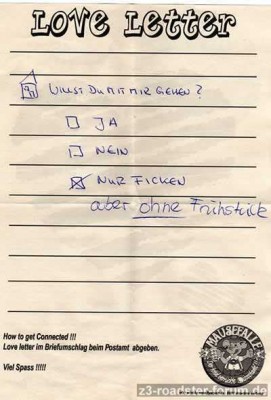 LOVE LETTER
WILLST DU MIT MIR GEHEN?
JA
NEIN
NUR FICKEN
aber ohne Frühstück
How to get Connected !!!
Love letter im Briefumschlag beim Postamt abgeben.
Viel Spass !!!!!
MAUSEFALLE
z3-roadster-forum.de